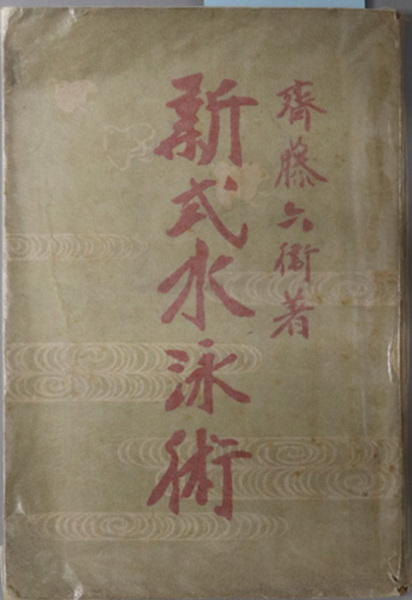 齋藤六衛著
新式水泳術